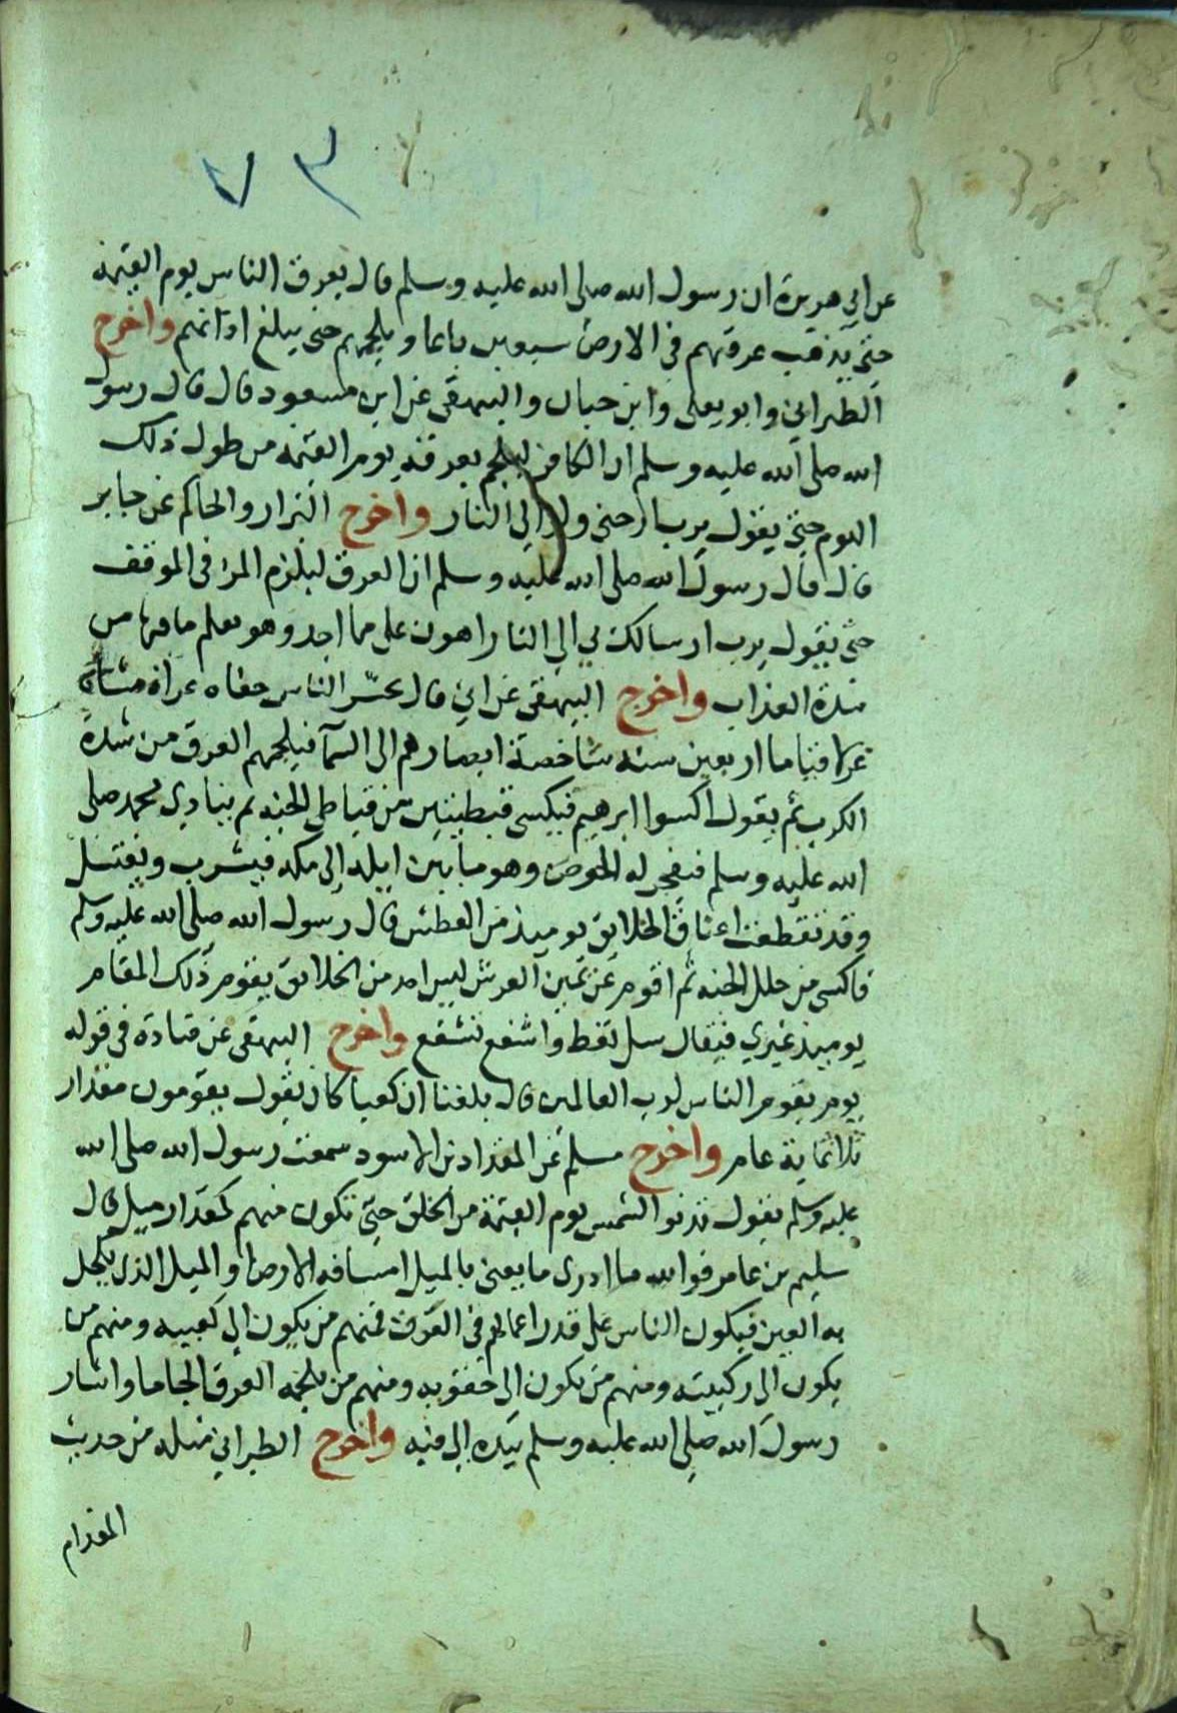 ٧٣
عن ابي هريرة ان رسول الله صلى الله عليه وسلم قال يعرق الناس يوم القيمة
حتى يذهب عرقهم في الارض سبعين باعا ويلجمهم حتى يبلغ اذانهم واخرج
الطبراني وابو يعلى وابن حبان والبيهقي عن ابن مسعود قال قال رسول
الله صلى الله عليه وسلم ان الكافر ليلجم بعرقه يوم القيمة من طول ذلك
اليوم حتى يقول يرب ارحني ولو الى النار واخرج البزار والحاكم عن جابر
قال قال رسول الله صلى الله عليه وسلم ان العرق ليلزم المرء في الموقف
حتى يقول يرب ارسالك بي الى النار اهون علي مما اجد وهو يعلم ما فيها من
شدة العذاب واخرج البيهقي عن قال يحشر الناس حفاه عراة مشاة
غرلا قياما اربعين سنه شاخصة ابصارهم الى السمآ فيلجمهم العرق من شدة
الكرب ثم يقول اكسوا ابرهيم فيكسى قبطيتين من قباطي الجنه ثم ينادي لمحمد صلى
الله عليه وسلم فيفجر له الحوض وهو ما بين ايله الى مكه فيشرب ويغتسل
وقد تقطعت اعناق الخلايق يوميذ من العطش قال رسول الله صلى الله عليه وسلم
فاكسى من حلل الجنه ثم اقوم عن يمين العرش ليس احد من الخلايق يقوم ذلك المقام
يوميذ غيري فيقال سل تعط واشفع تشفع واخرج البيهقي عن قتادة في قوله
يوم يقوم الناس لرب العالمين قال بلغنا ان كعبا كان يقول يقومون مقدار
ثلاثماية عام واخرج مسلم عن المقداد بن الاسود سمعت رسول الله صلى الله
عليه وسلم يقول تدنو الشمس يوم القيمة من الخلق حتى تكون منهم كمقدار ميل قال
سليم بن عامر فوالله ما ادرى ما يعنى بالميل امسافه الارض او الميل الذي يكحل
به العين فيكون الناس على قدر اعمالهم في العرق فمنهم من يكون الى كعبيه ومنهم من
يكون الى ركبتيه ومنهم من يكون الى حقويه ومنهم من يلجمه العرق الجاما واشار
رسول الله صلى الله عليه وسلم بيده الى فيه واخرج الطبراني مثله من حديث
المقدام